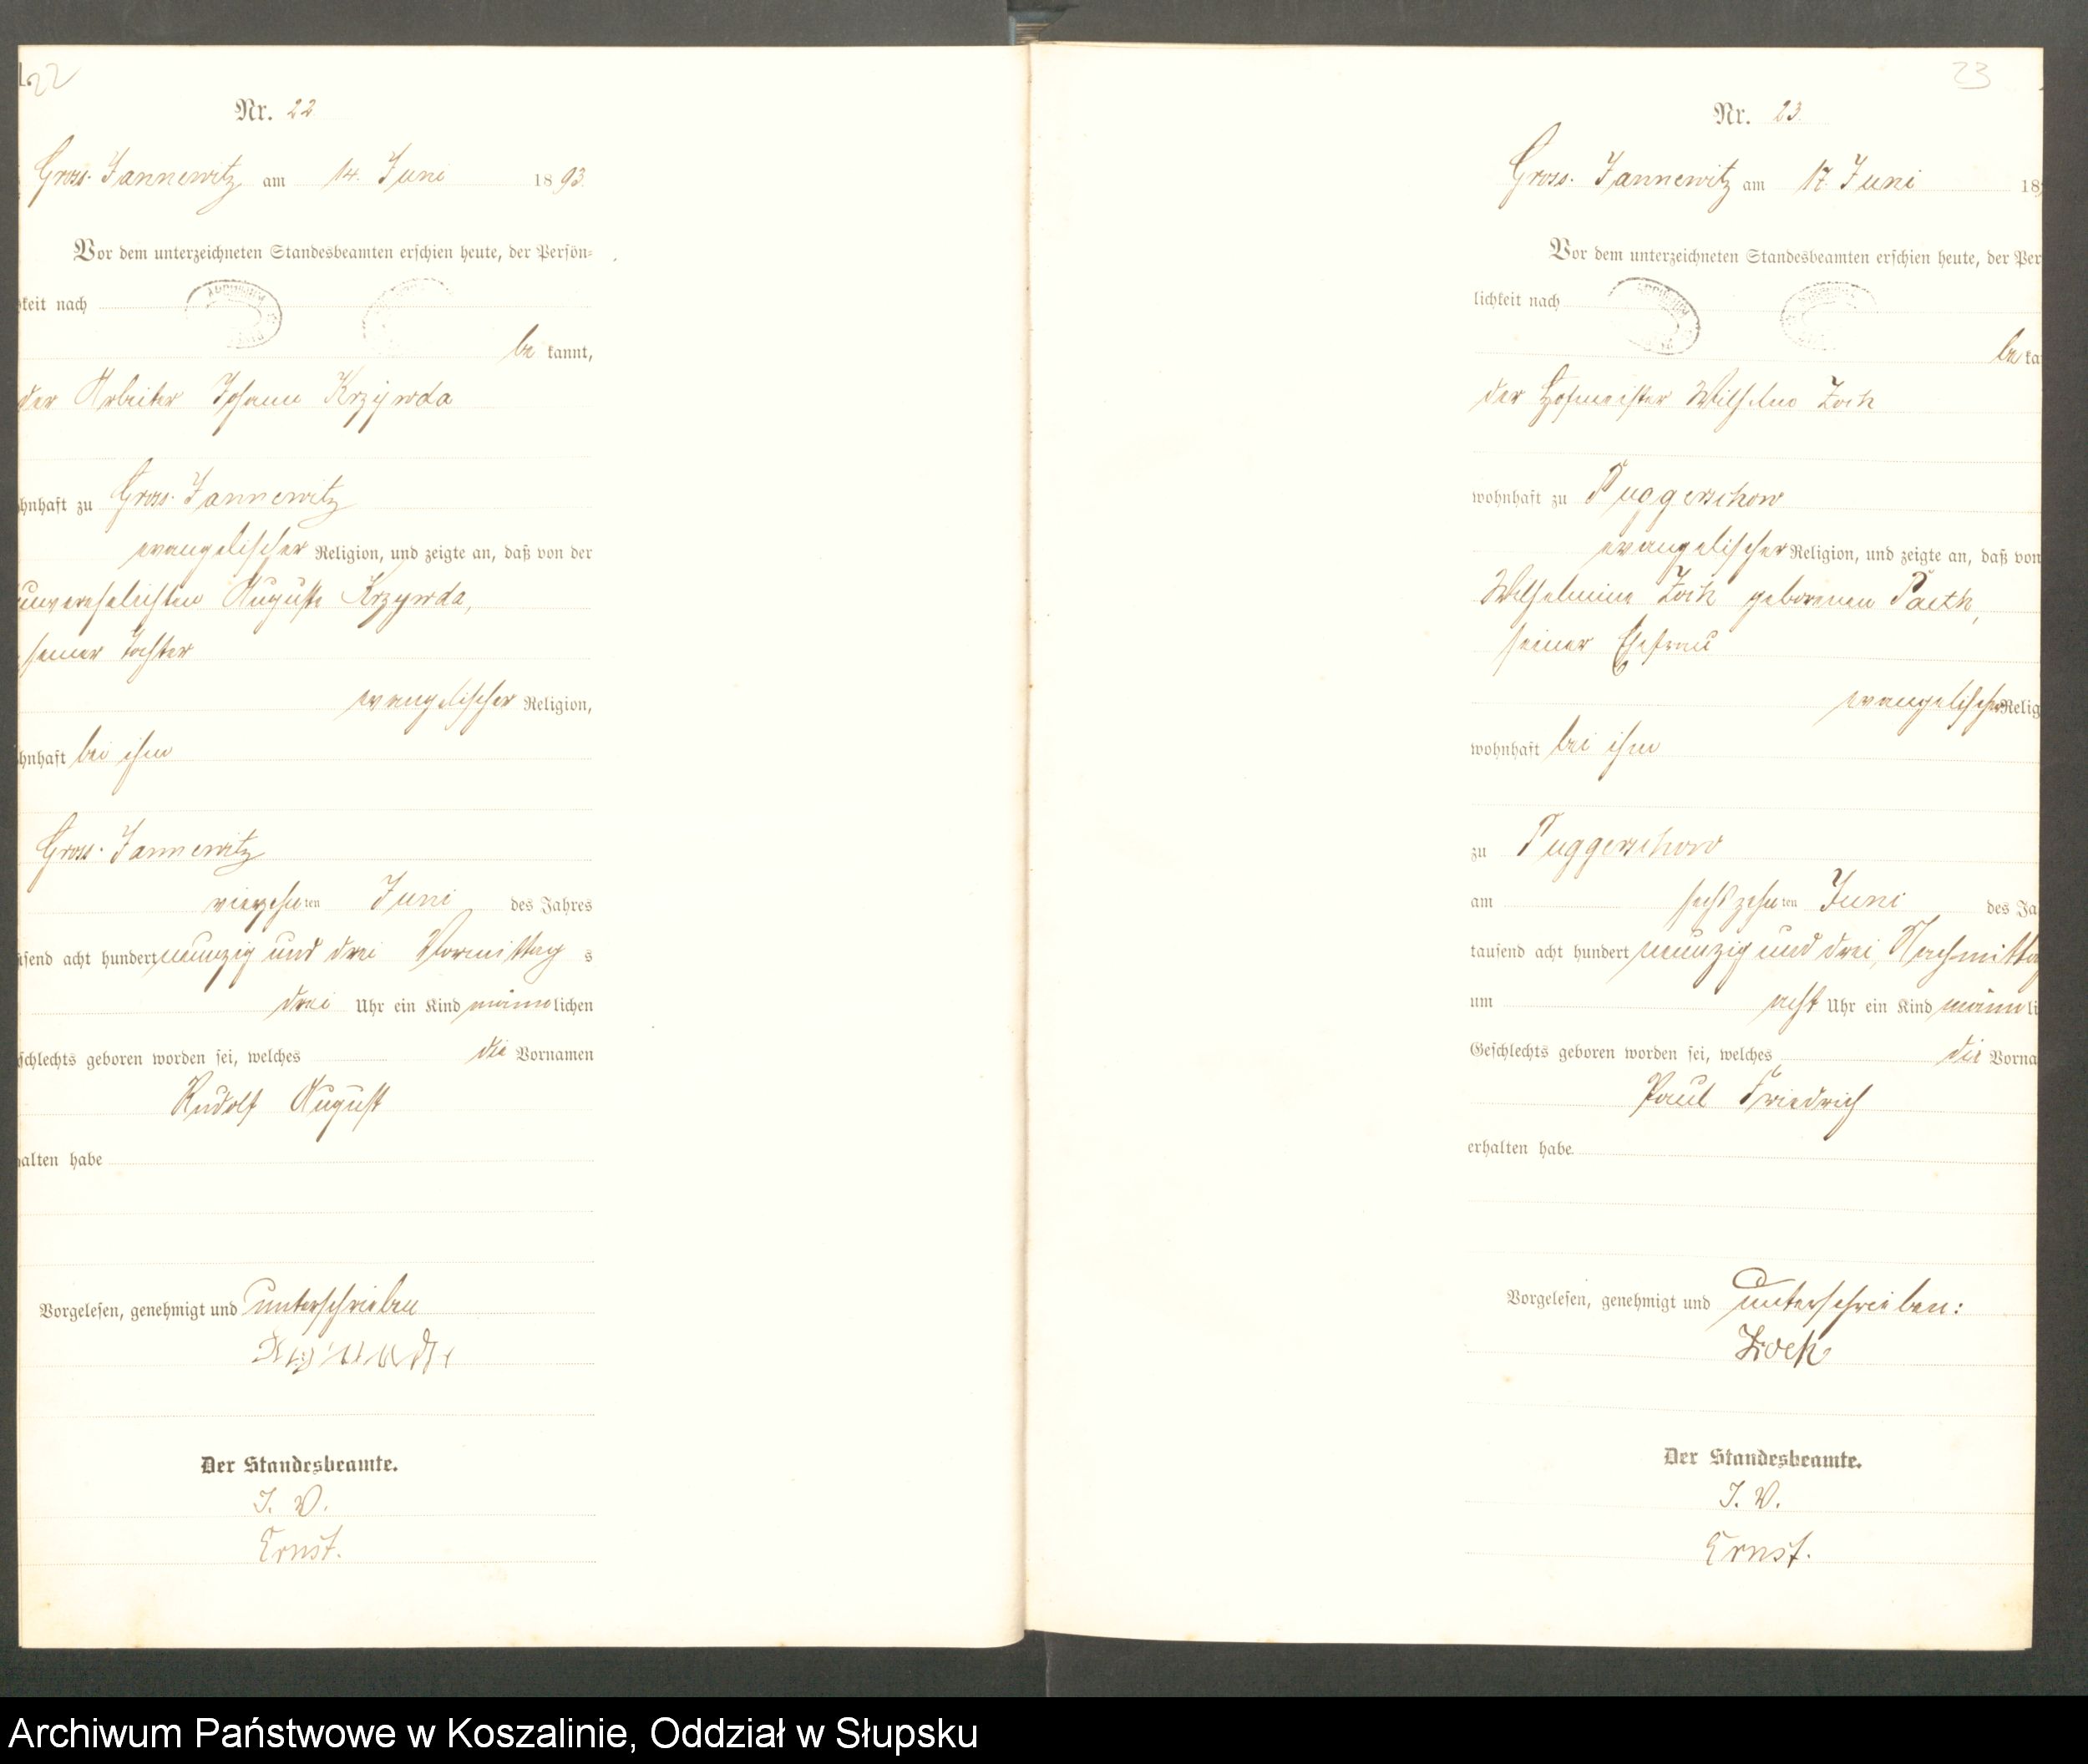 22
Nr. 22
Gross. Jannewitz am 14. Juni 1893.
Vor dem unterzeichneten Standesbeamten erschien heute, der Persön-
keit nach
be kannt,
der Arbeiter Johann Krzywda
hnhaft zu Gross. Jannewitz
evangelischer Religion, und zeigte an, daß von der
unverehelichten Auguste Krzywda,
seiner Tochter
evangelischer Religion,
hnhaft bei ihm
Gross. Jannewitz
vierzehnten Juni des Jahres
usend acht hundert neunzig und drei Vormittag s
drei Uhr ein Kind männlichen
schlechts geboren worden sei, welches die Vornamen
Rudolf August
alten habe
Vorgelesen, genehmigt und unterschrieben
Der Standesbeamte.
J. V.
Ernst.
23
Nr. 23.
Gross. Jannewitz am 17. Juni 18
Vor dem unterzeichneten Standesbeamten erschien heute, der Per
lichkeit nach
be ka
der Hofmeister Wilhelm Zoch
wohnhaft zu Puggerschow
evangelischer Religion, und zeigte an, daß von
Wilhelmine Zoch geborenen Paeth,
seiner Ehefrau
evangelischer Relig
wohnhaft bei ihm
zu Puggerschow
am sechszehnten Juni des Ja
tausend acht hundert neunzig und drei, Nachmittag
um acht Uhr ein Kind männli
Geschlechts geboren worden sei, welches die Vorna
Paul Friedrich
erhalten habe
Vorgelesen, genehmigt und unterschrieben:
Zoch
Der Standesbeamte.
J. V.
Ernst.
Archiwum Państwowe w Koszalinie, Oddział w Słupsku